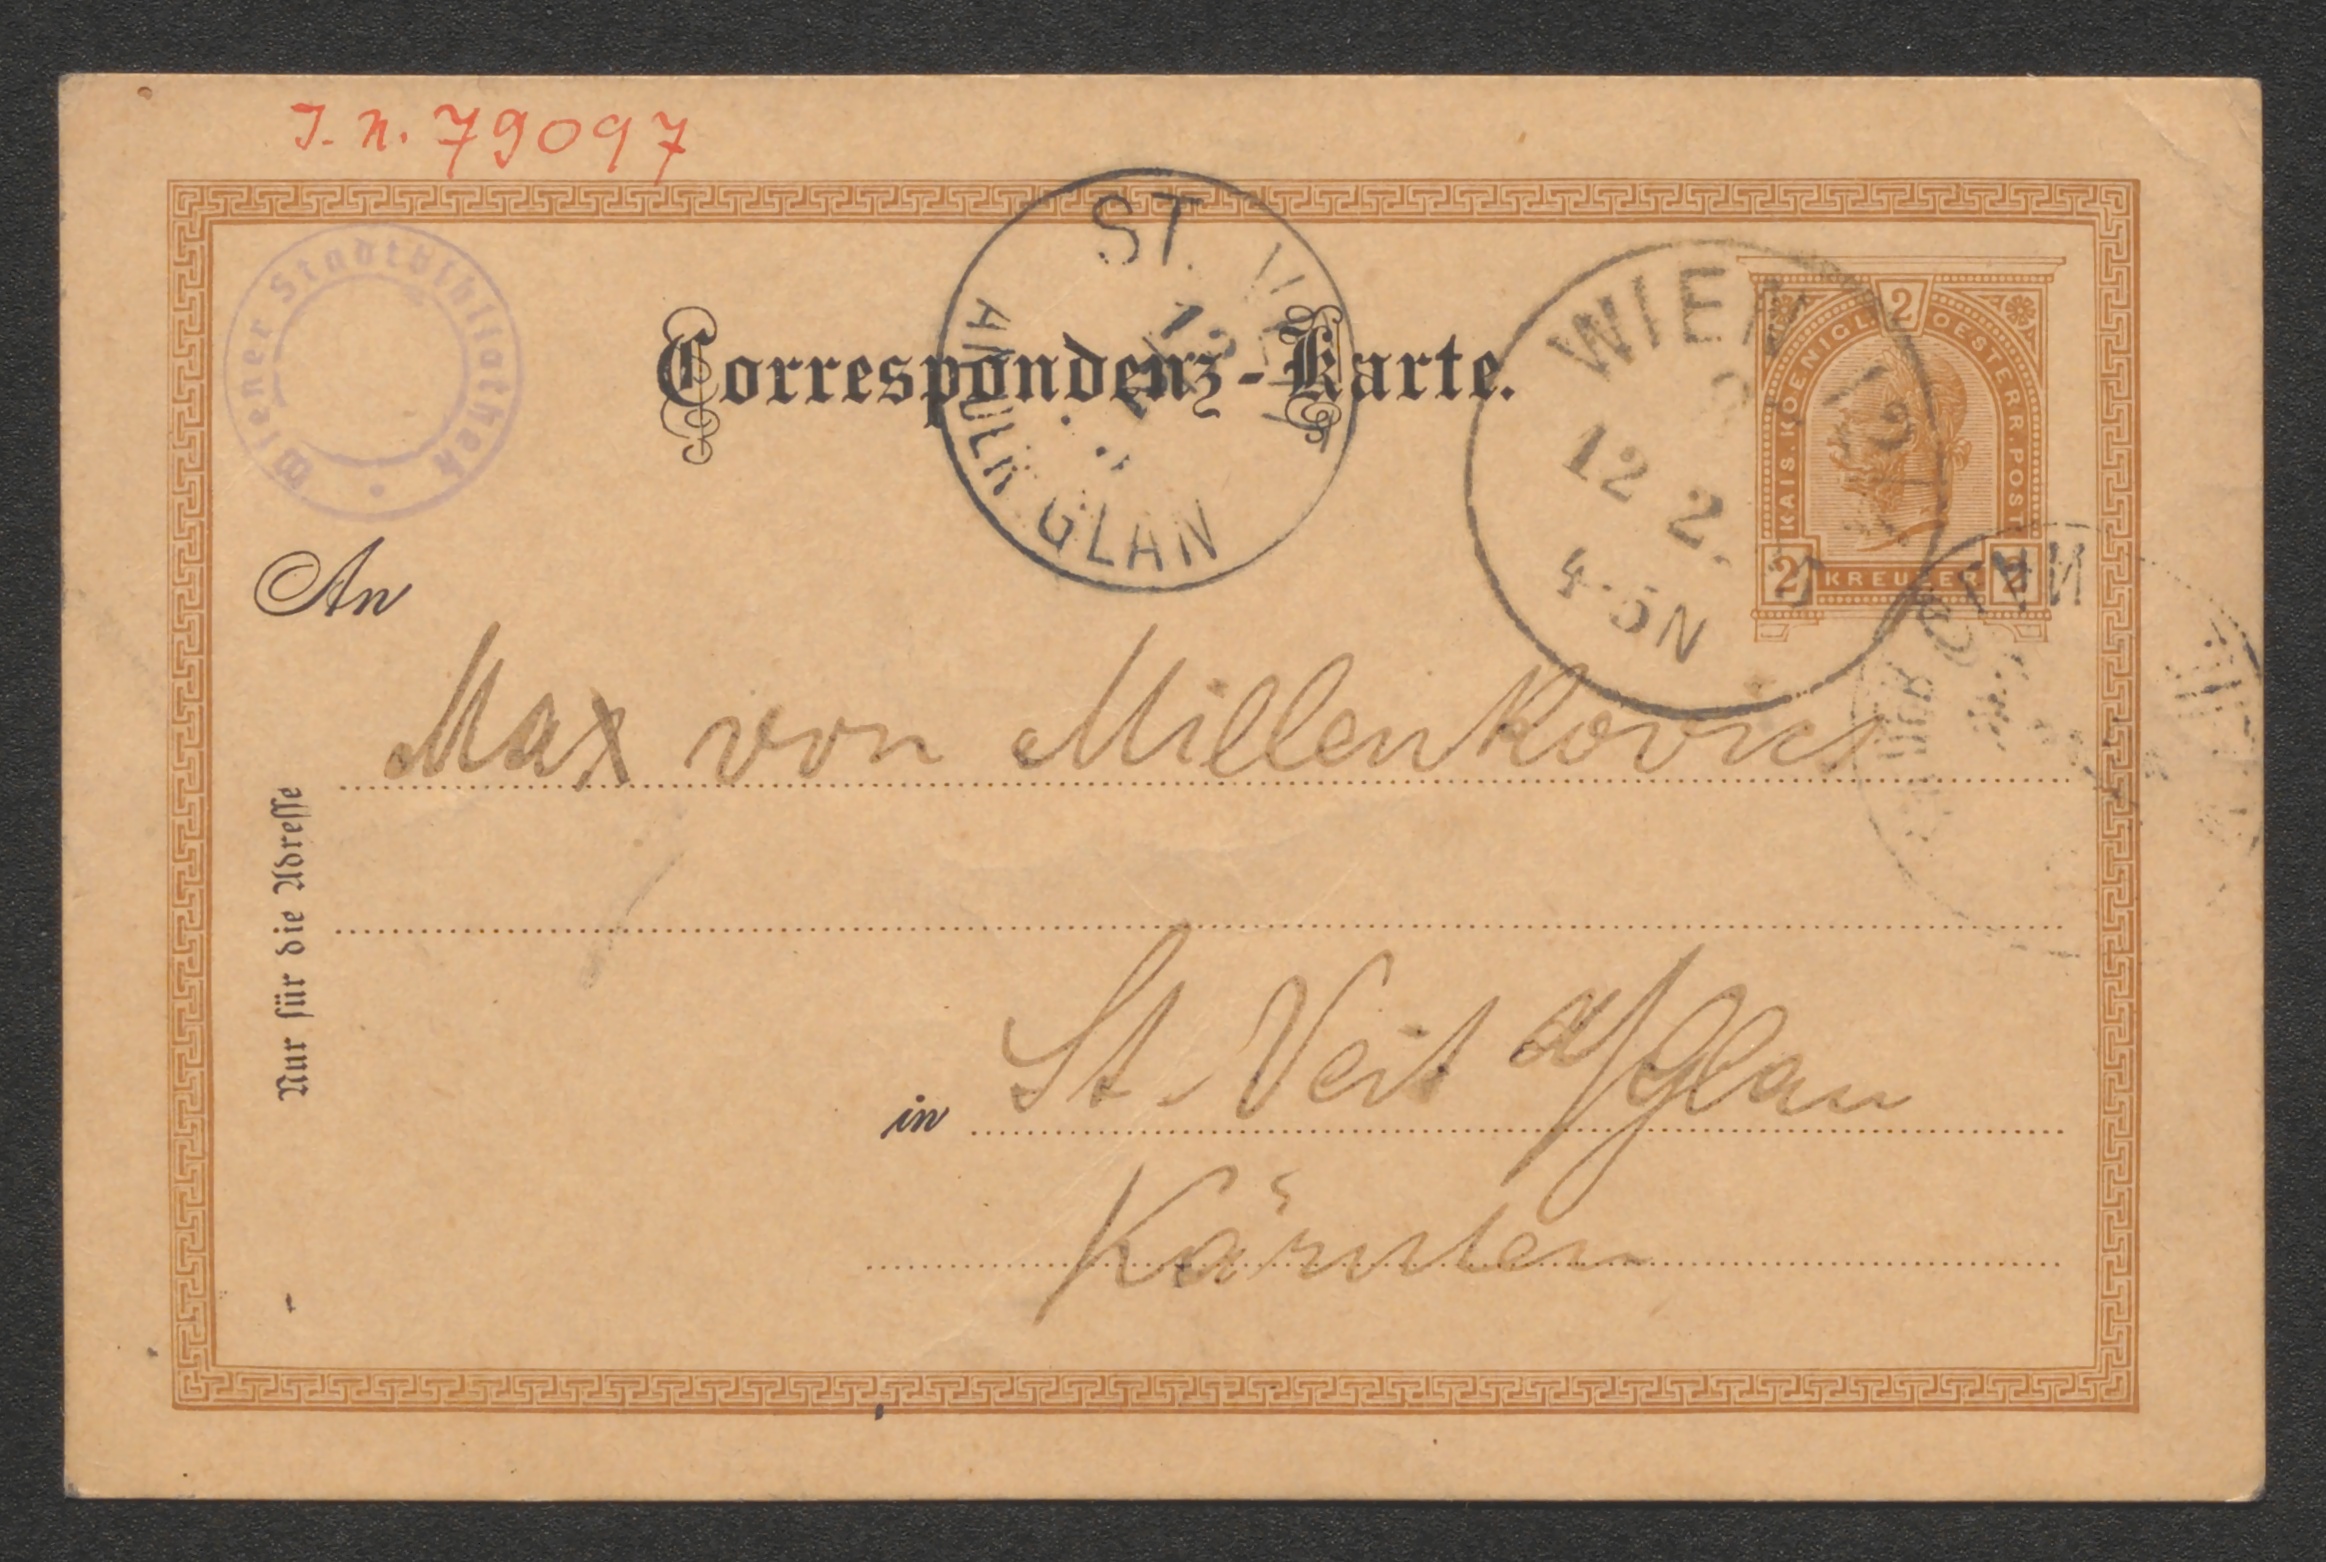 J. N. 79097
Wiener Stadtbibliothek
ST. VEIT
AN DER GLAN
12
WIEN
12 2.
4-5N
2
KAIS. KOENIGL. OESTERR. POST
2 KREUZER 2
Correspondenz-Karte.
An
Max von Millenkovics
Nur für die Adresse
in St. Veit a/Glan
Kärnten